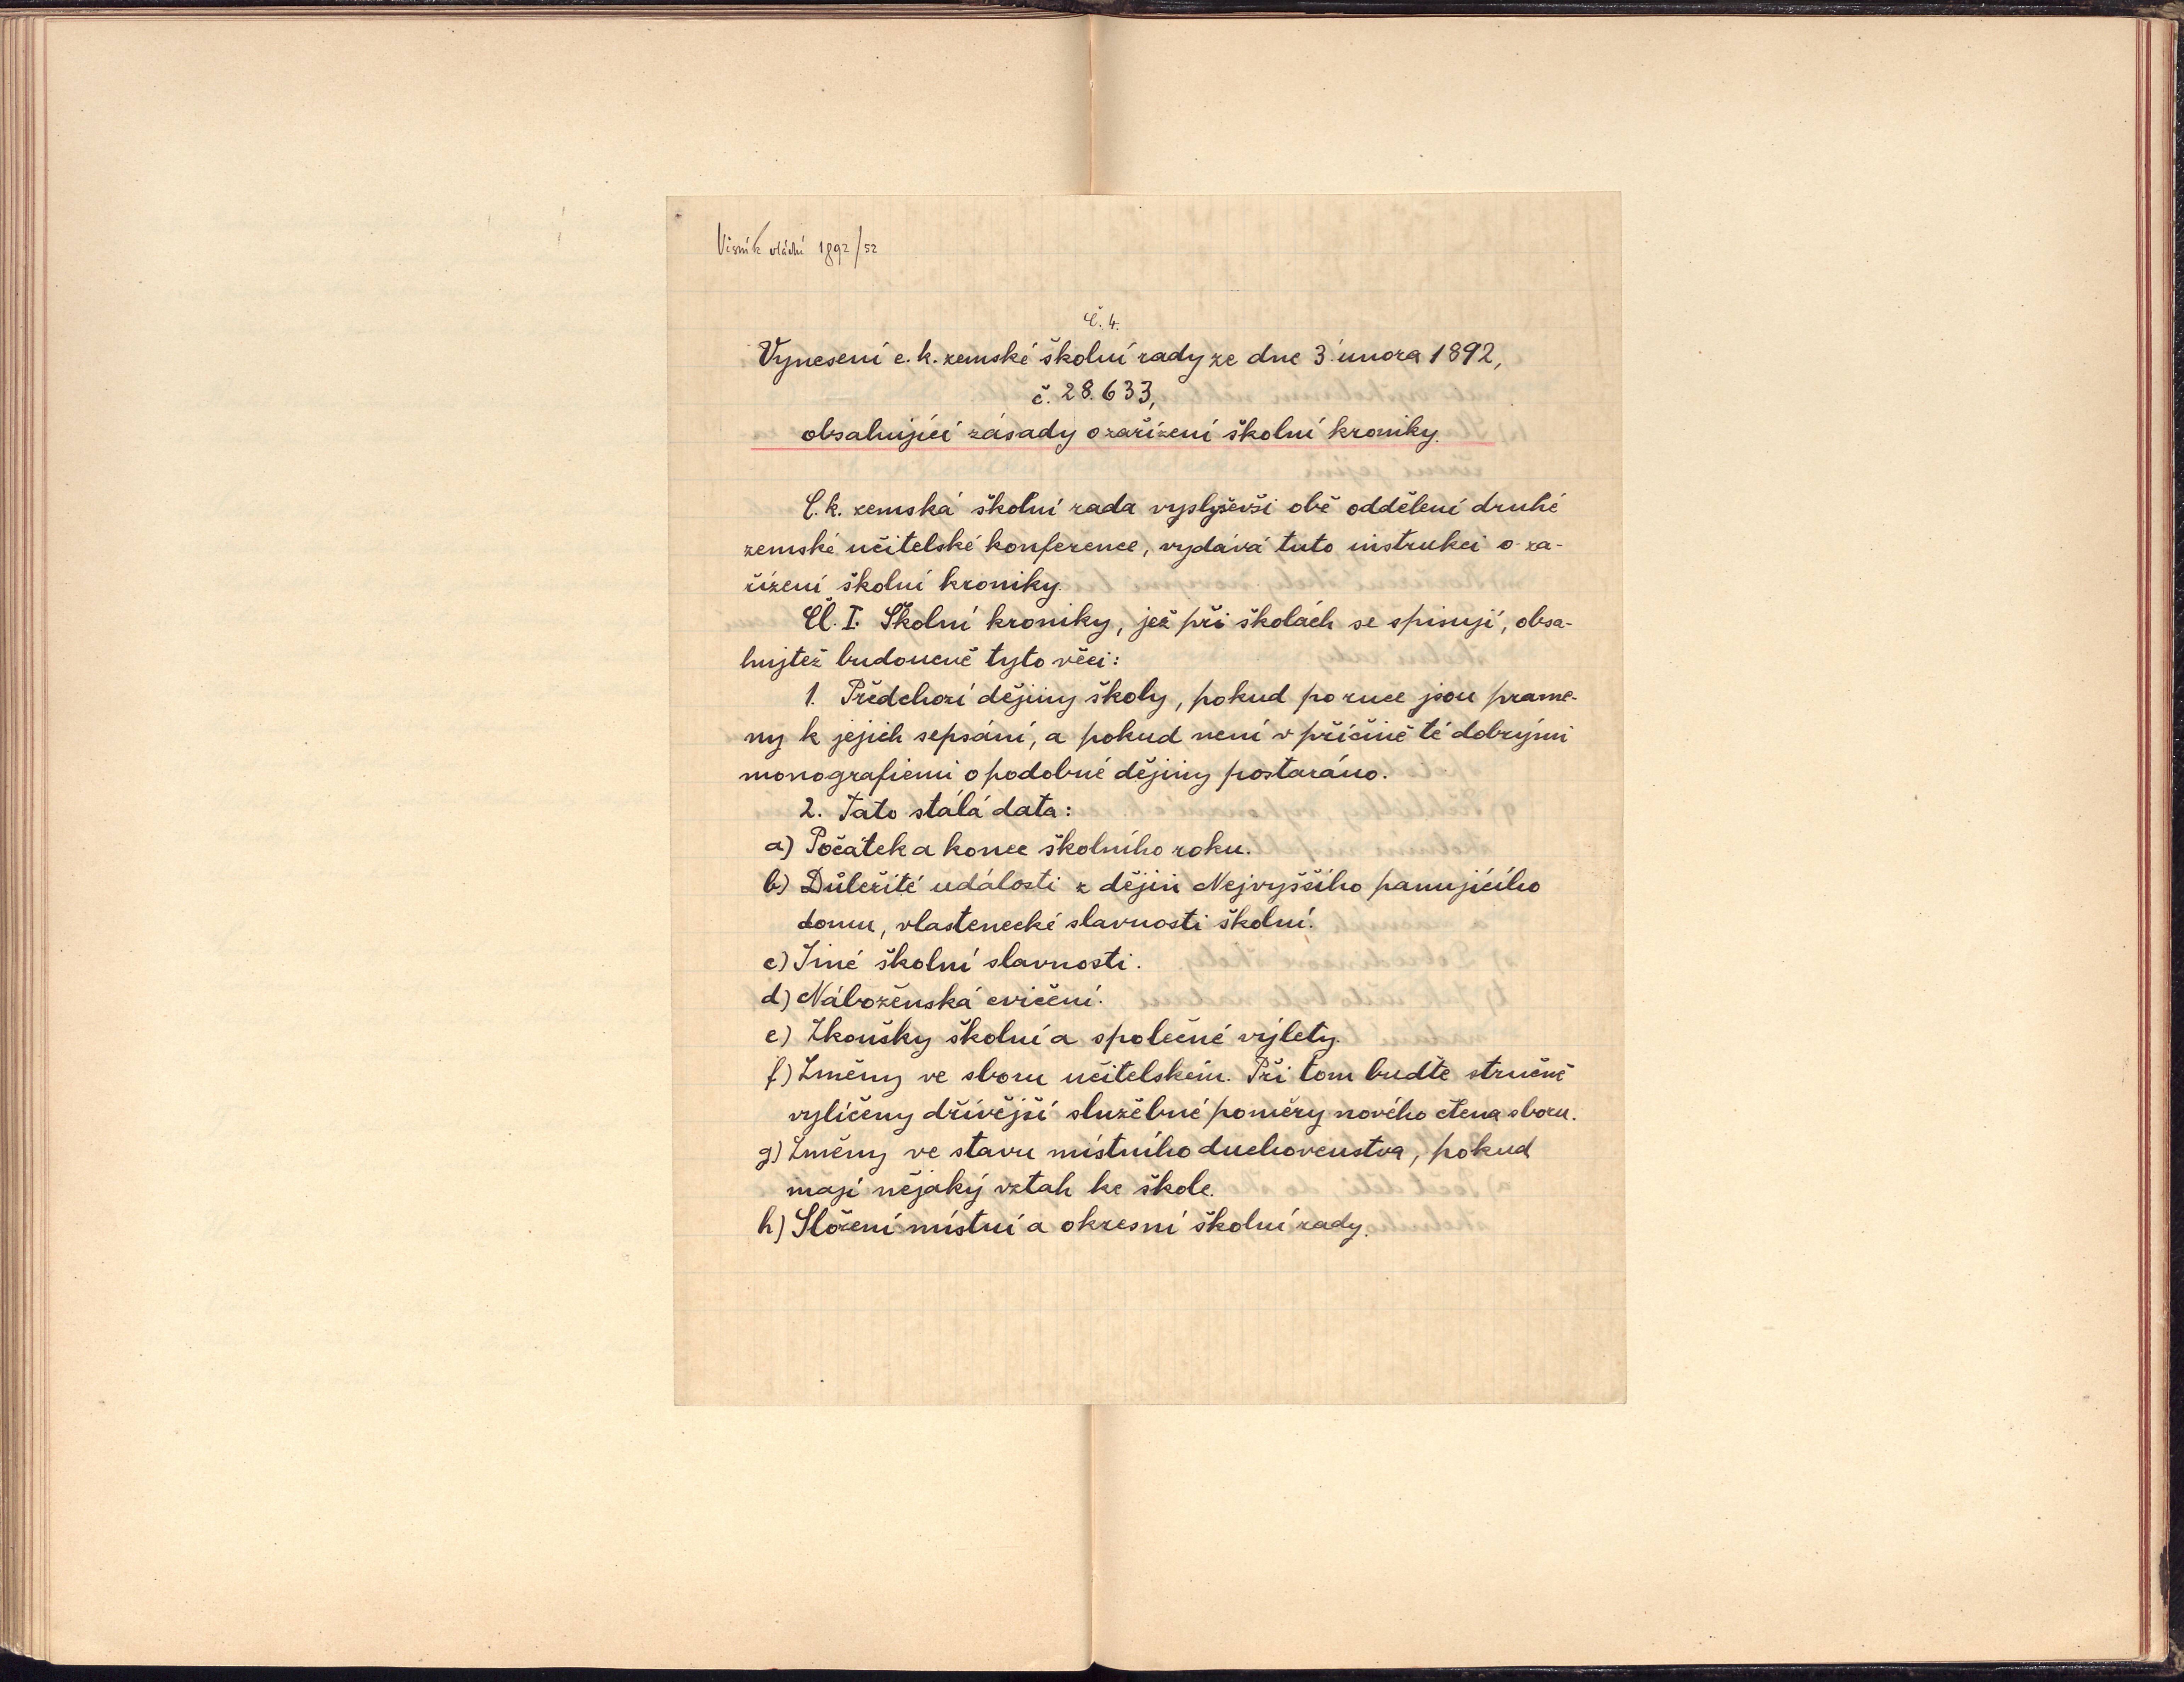 Věstník vládní 1892/52
Č. 4.
Vynesení c. k. zemské školní rady ze dne 3. února 1892,
č. 28.633,
obsahující zásady o zařízení školní kroniky.
C. k. zemská školní rada vyslyševši obě oddělení druhé
zemské učitelské konference, vydává tuto instrukci o za-
řízení školní kroniky.
Čl. I. Školní kroniky, jež při školách se spisují, obsa-
hujtež budoucně tyto věci:
1. Předchozí dějiny školy, pokud po ruce jsou prame-
ny k jejich sepsání, a pokud není v příčině té dobrými
monografiemi o podobné dějiny postaráno.
2. Tato stálá data:
a) Počátek a konec školního roku.
b) Důležité události z dějin Nejvyššího panujícího
domu, vlastenecké slavnosti školní.
c) Jiné školní slavnosti.
d) Náboženská cvičení.
e) Zkoušky školní a společné výlety.
f) Změny ve sboru učitelském. Při tom buďte stručně
vylíčeny dřívější služebné poměry nového člena sboru.
g) Změny ve stavu místního duchovenstva, pokud
mají nějaký vztah ke škole.
h) Složení místní a okresní školní rady.